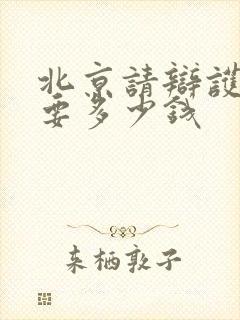 北京請辯護
要多少錢
来栖敦子